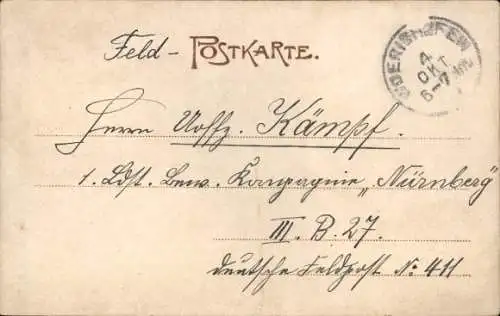 Feld - POSTKARTE.
WOERISHOFEN
4
OKT
6-7 NM
Herrn Uoffz. Kämpf.
1. Ldst. Bew. Kompagnie „Nürnberg"
III. B. 27.
deutsche Feldpost No. 411